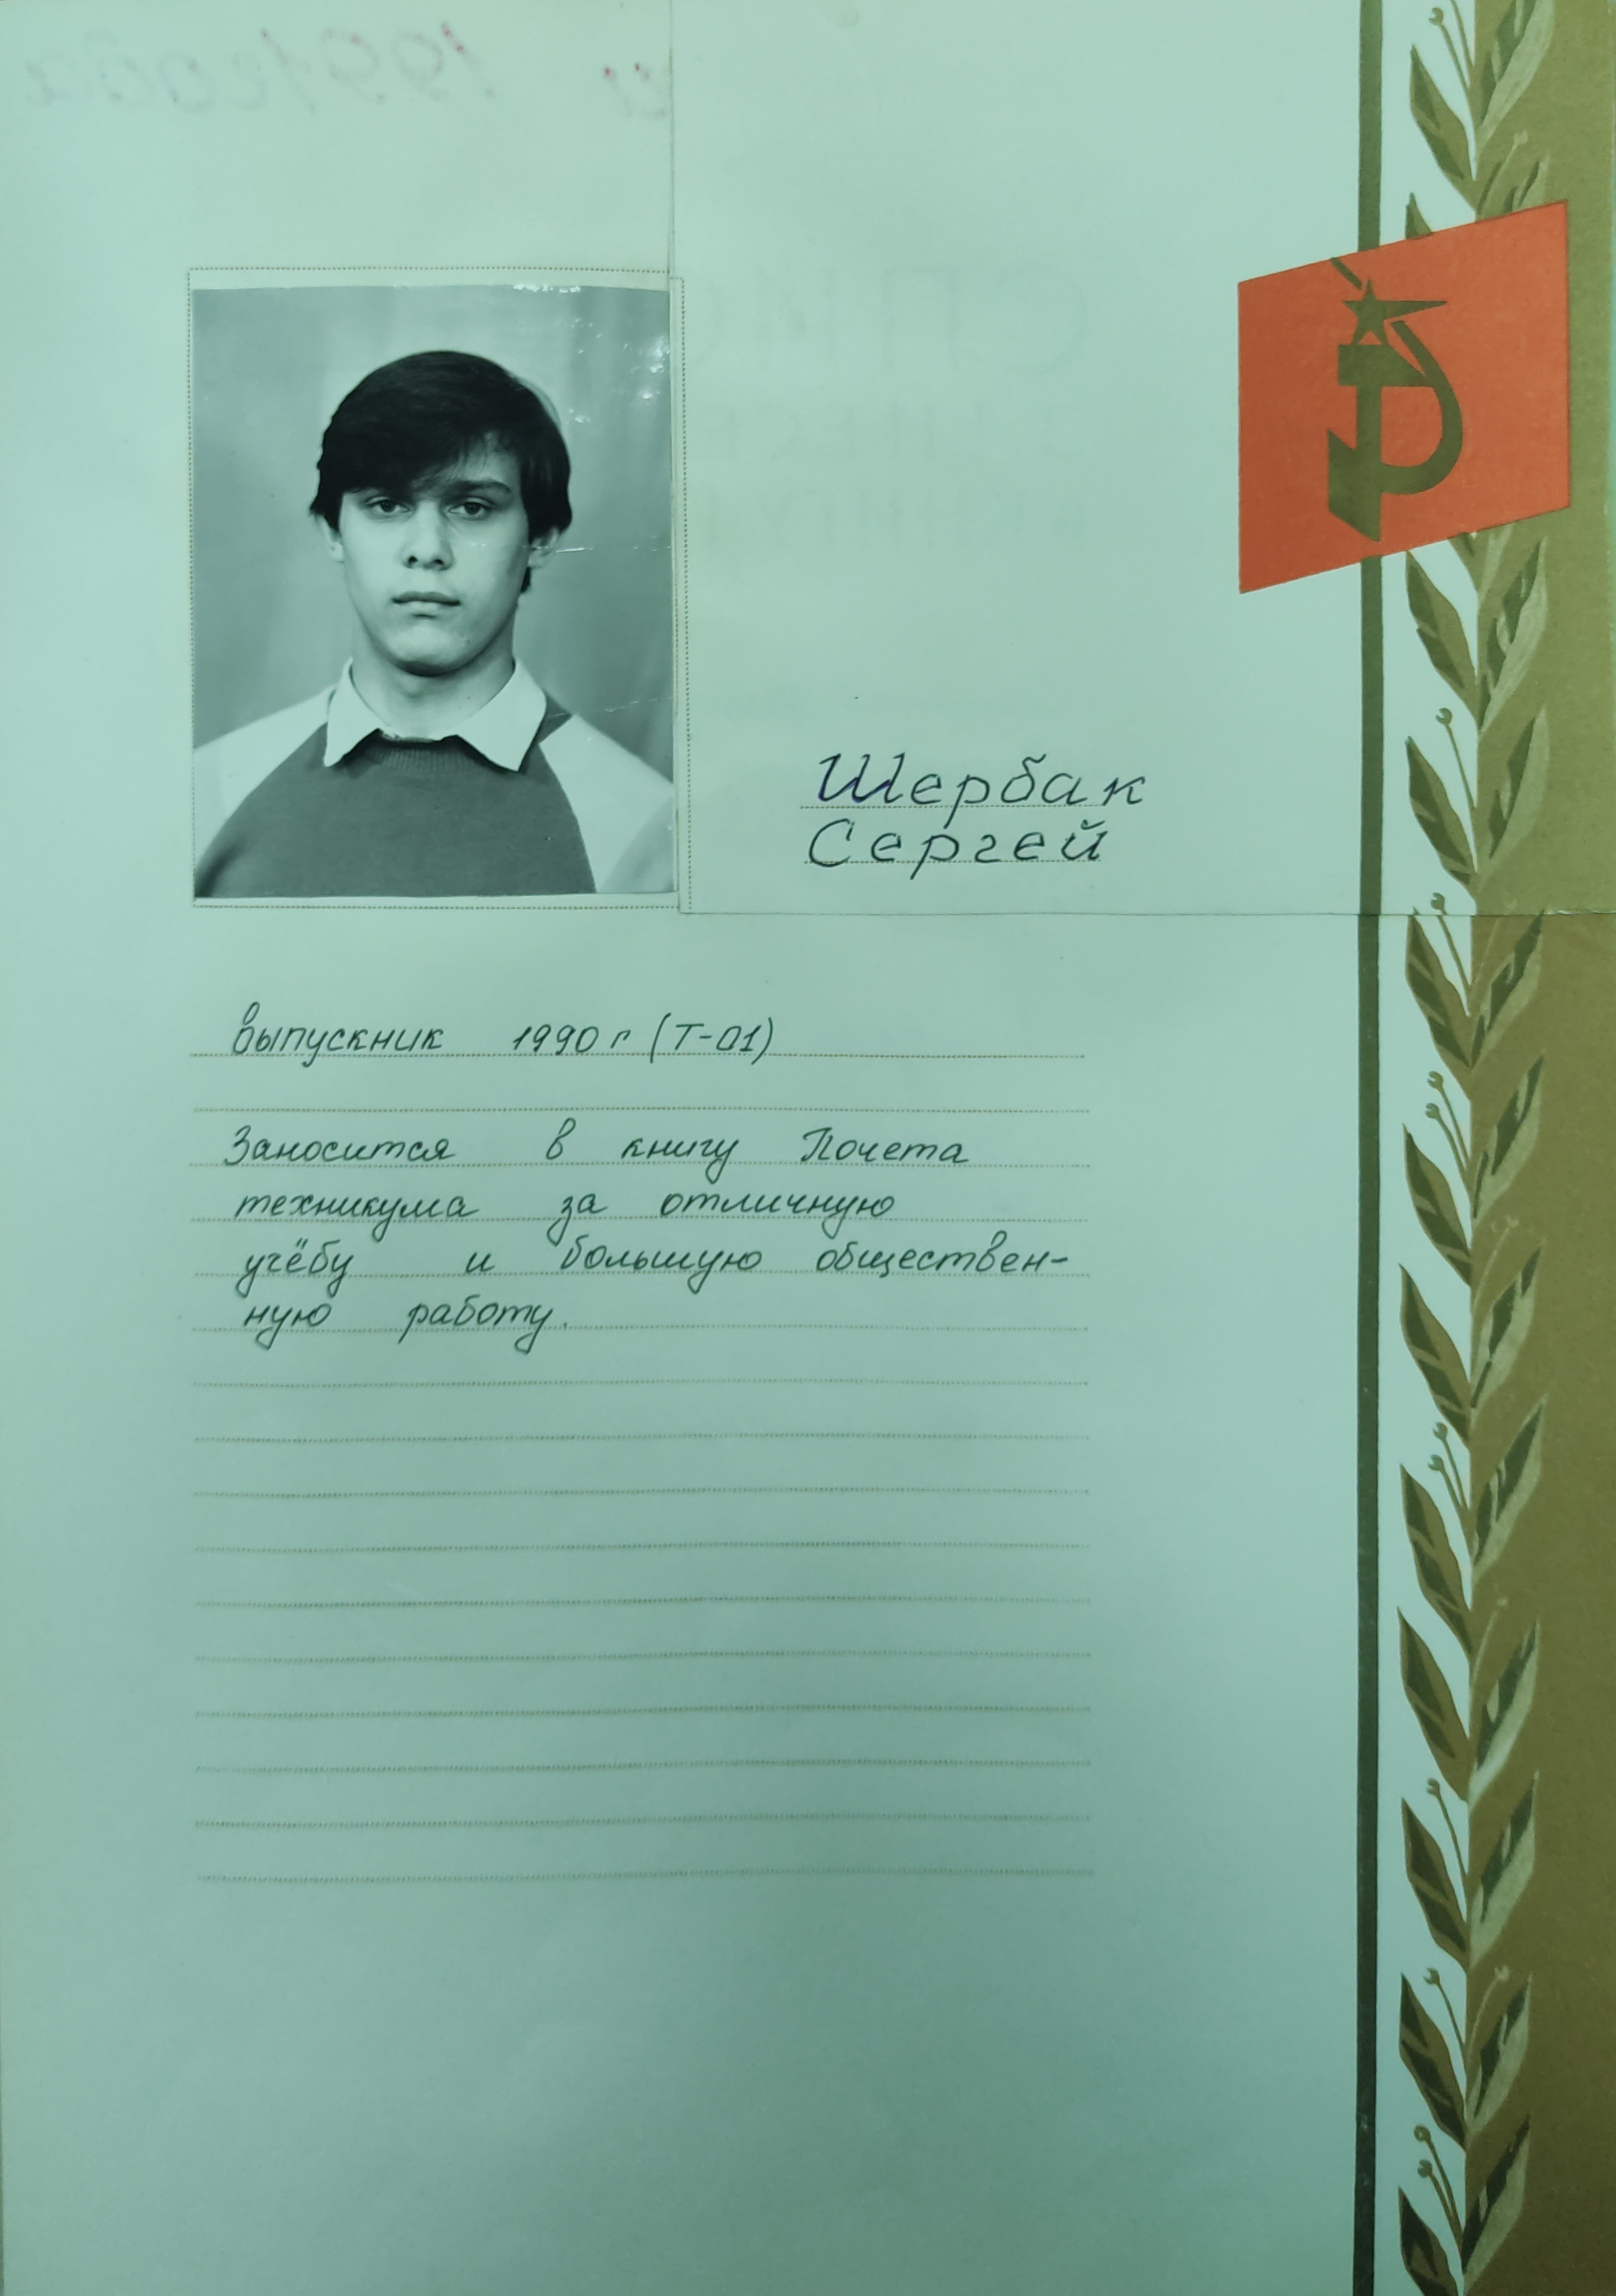 Шербак
Сергей
выпускник 1990 г (Т-01)
Заносится в книгу Почета
техникума за отличную
учёбу и большую обществен-
ную работу.